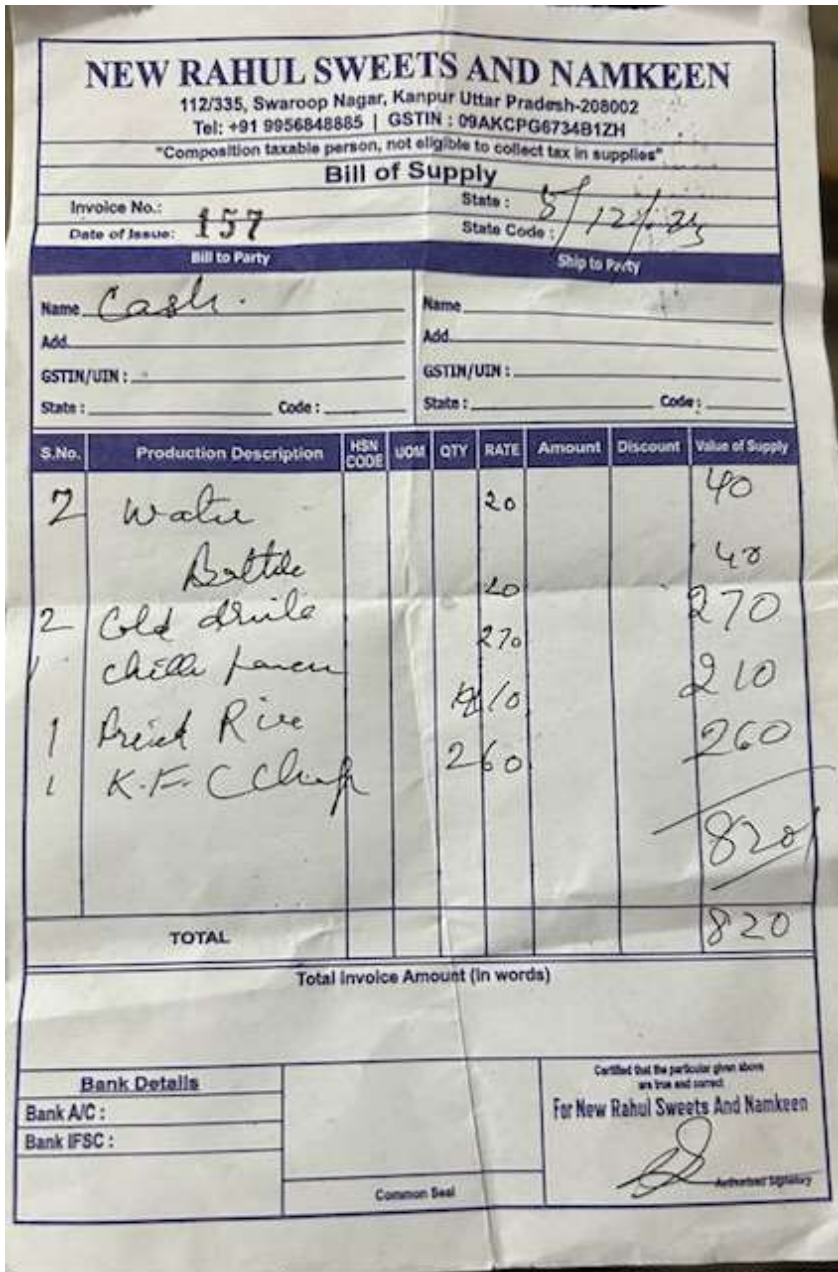 NEW RAHUL SWEETS AND NAMKEEN
112/335, Swaroop Nagar, Kanpur Uttar Pradesh-208002
Tel: +91 9956848885 | GSTIN : 09AKCPG6734B1ZH
"Composition taxable person, not eligible to collect tax in supplies"
Bill of Supply
Invoice No.: 157 State :
Date of Issue: State Code : 8/12/23
Bill to Party Ship to Party
Name Cash. Name
Add. Add.
GSTIN/UIN : GSTIN/UIN :
State : Code : State : Code :
S.No. Production Description HSN CODE UOM QTY RATE Amount Discount Value of Supply
2 Water 20 40
Bottle
2 Cold drink 20 40
1 Chilli 270 270
1 Fried Rice 210 210
1 K.F.C Chap 260 260
820
TOTAL 820
Total Invoice Amount (in words)
Bank Details
Bank A/C :
Bank IFSC :
Common Seal
Certified that the particular given above
are true and correct
For New Rahul Sweets And Namkeen
Authorised Signatory